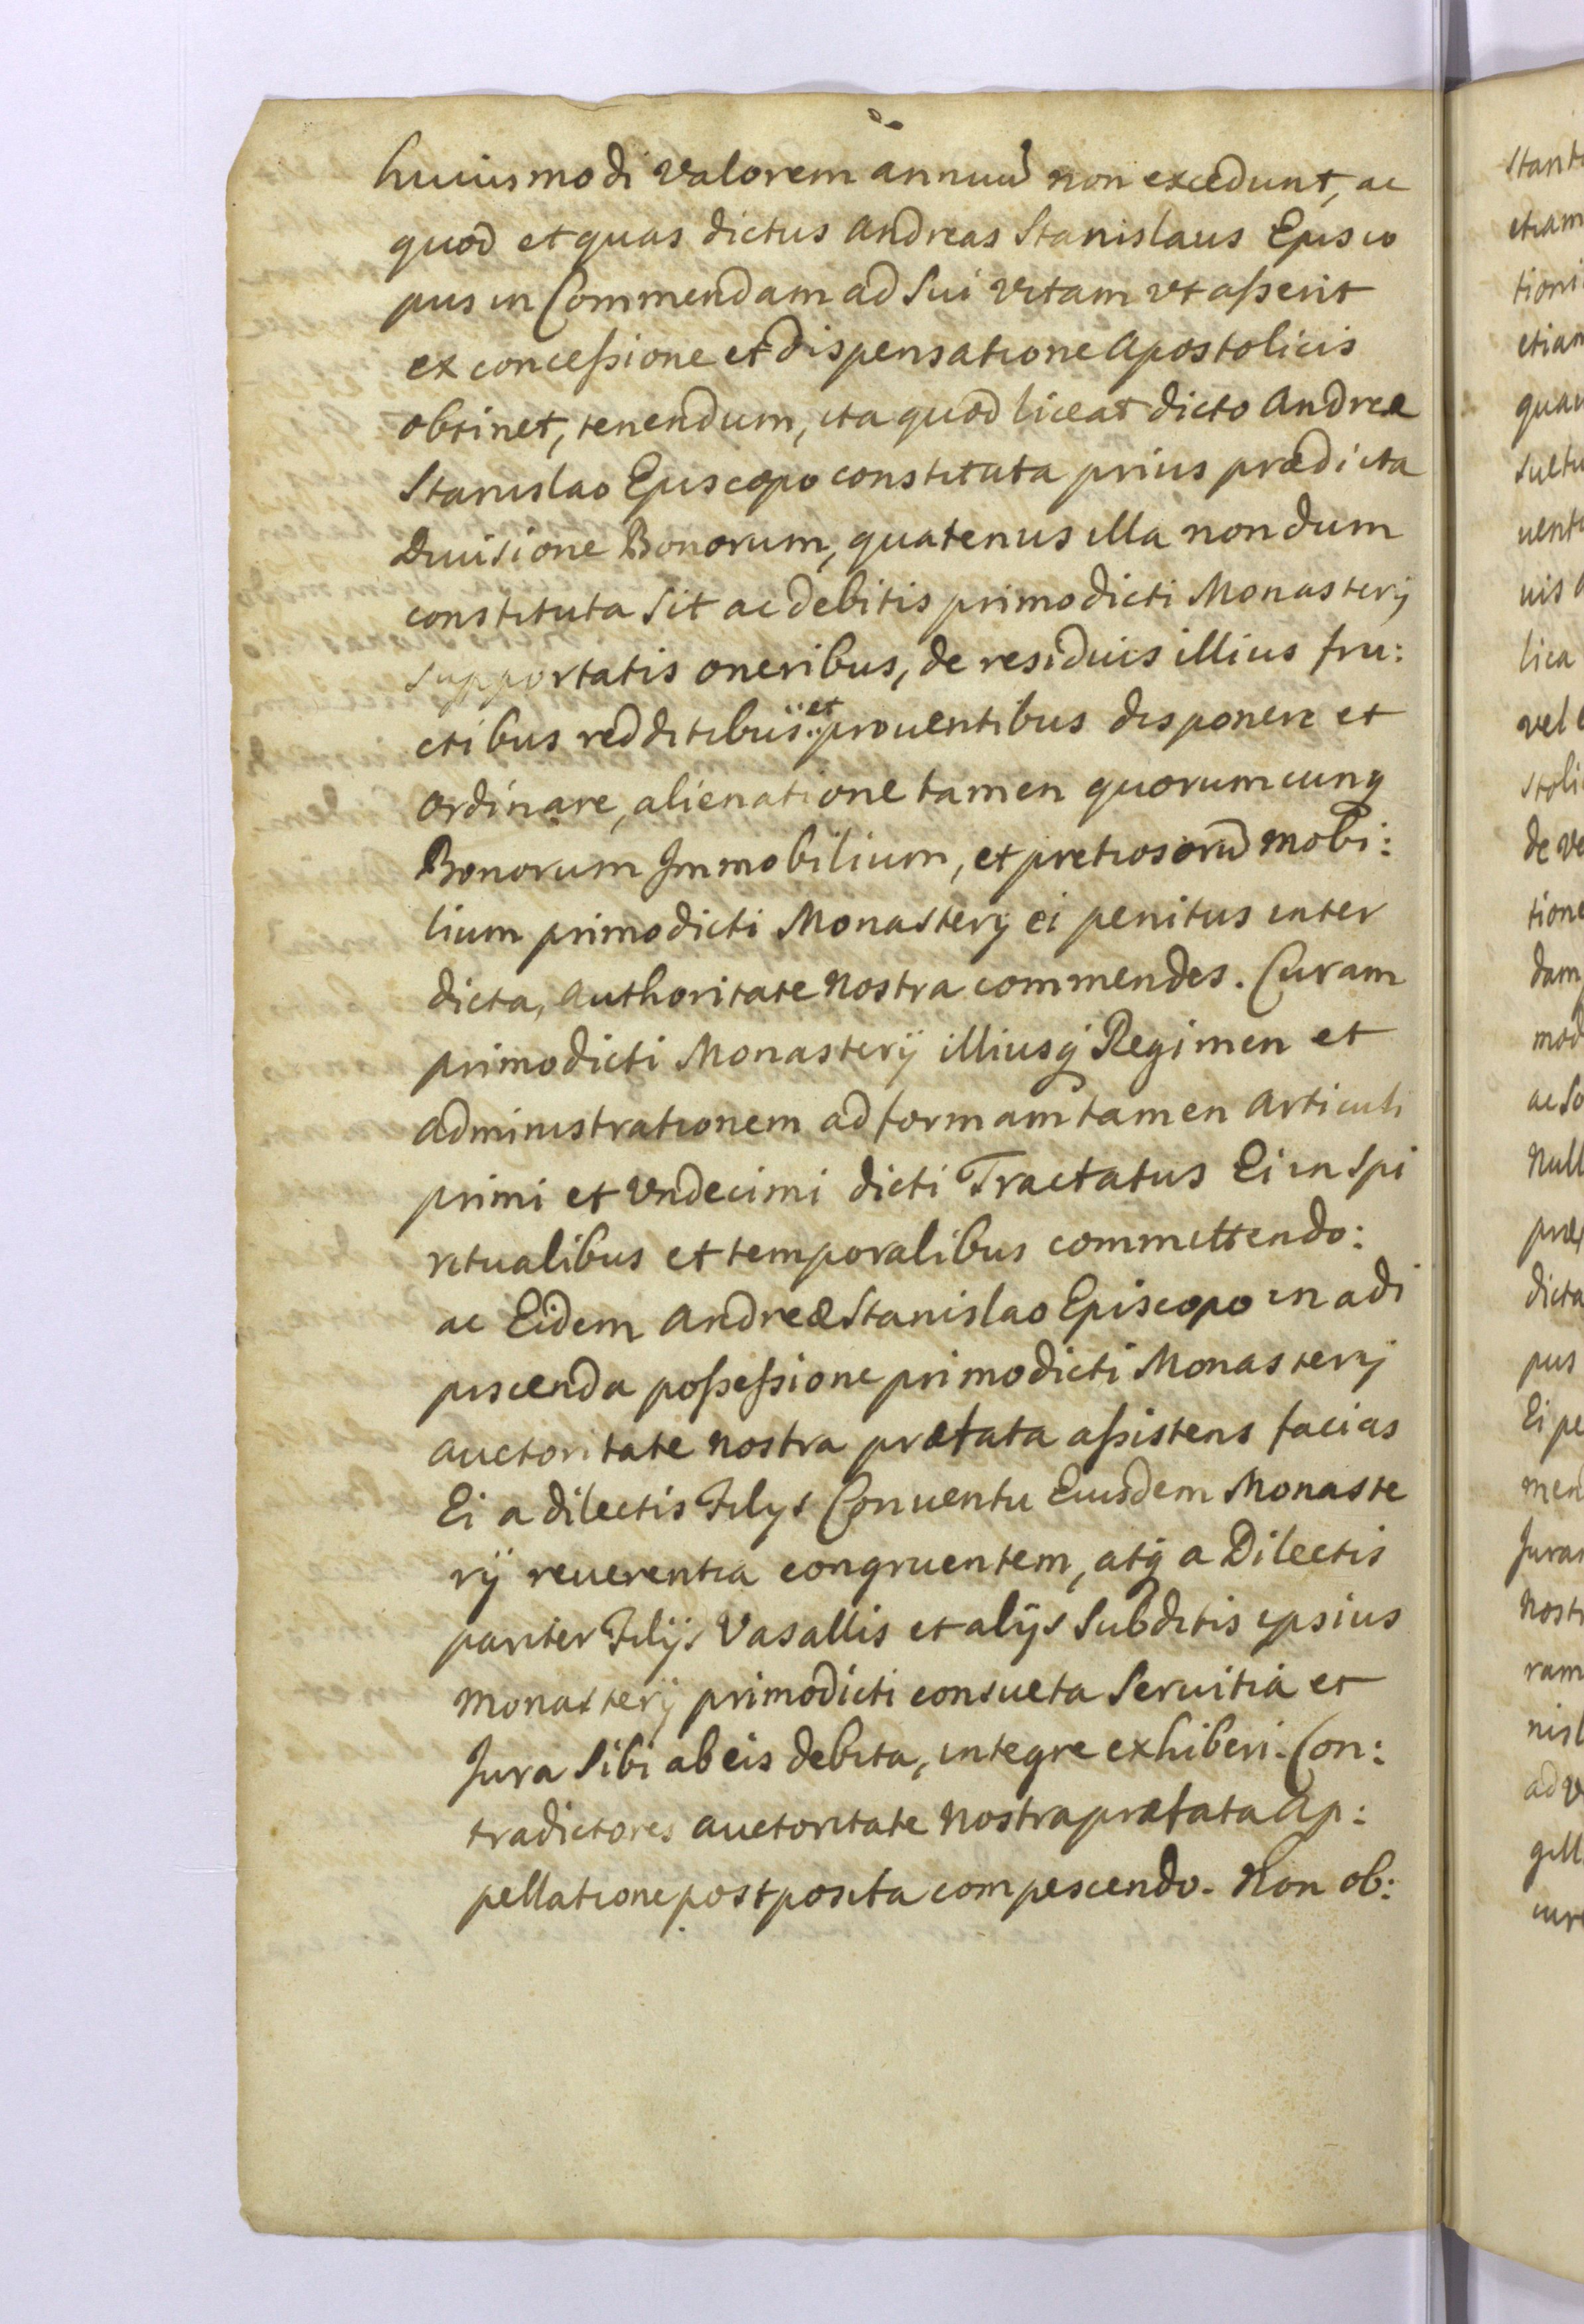 huiusmodi valorem annuū non excedunt, ac
quod et quas dictus Andreas Stanislaus Episco
pus in Commendam ad sui vitam vt aſserit
ex conceſsione et dispensatione Apostolicis
obtinet, tenendum, ita quod liceat dicto Andreæ
Stanislao Episcopo constituta prius prædicta
Diuisione Bonorum, quatenus illa nondum
constituta sit ac debitis primodicti Monasterij
supportatis oneribus, de residuis illius fru:
ctibus redditibus et prouentibus disponere et
ordinare, alienatione tamen quorumcunq
Bonorum Immobilium, et pretiosorū mobi:
lium primodicti Monasterij ei penitus inter
dicta, Authoritate nostra commendes. Curam
primodicti Monasterij illiusq Regimen et
administrationem ad formam tamen Articuli
primi et vndecimi dicti Tractatus Ei in spi
ritualibus et temporalibus committendo:
ac Eidem Andreæ Stanislao Episcopo in adi
piscenda poſseſsione primodicti Monasterij
auctoritate nostra præfata aſsistens facias
Ei a dilectis Filys Conuentu Eiusdem Monaste
rij reuerentia congruentem, atq a Dilectis
pariter Filijs Vasallis et alijs subditis ipsius
Monasterij primodicti consueta seruitia et
Jura sibi ab eis debita, integre exhiberi. Con:
tradictores auctoritate nostra præfata Ap:
pellatione postposita compescendo. Non ob:
stant
etiam
tioni
etiam
quam
uent
uis
lica
vel
stoli
de ve
tione
dam
mod
ac so
Null
præ
dicta
pus
Ei pe
men
Juras
nost
ram
nisl
ad v
gill